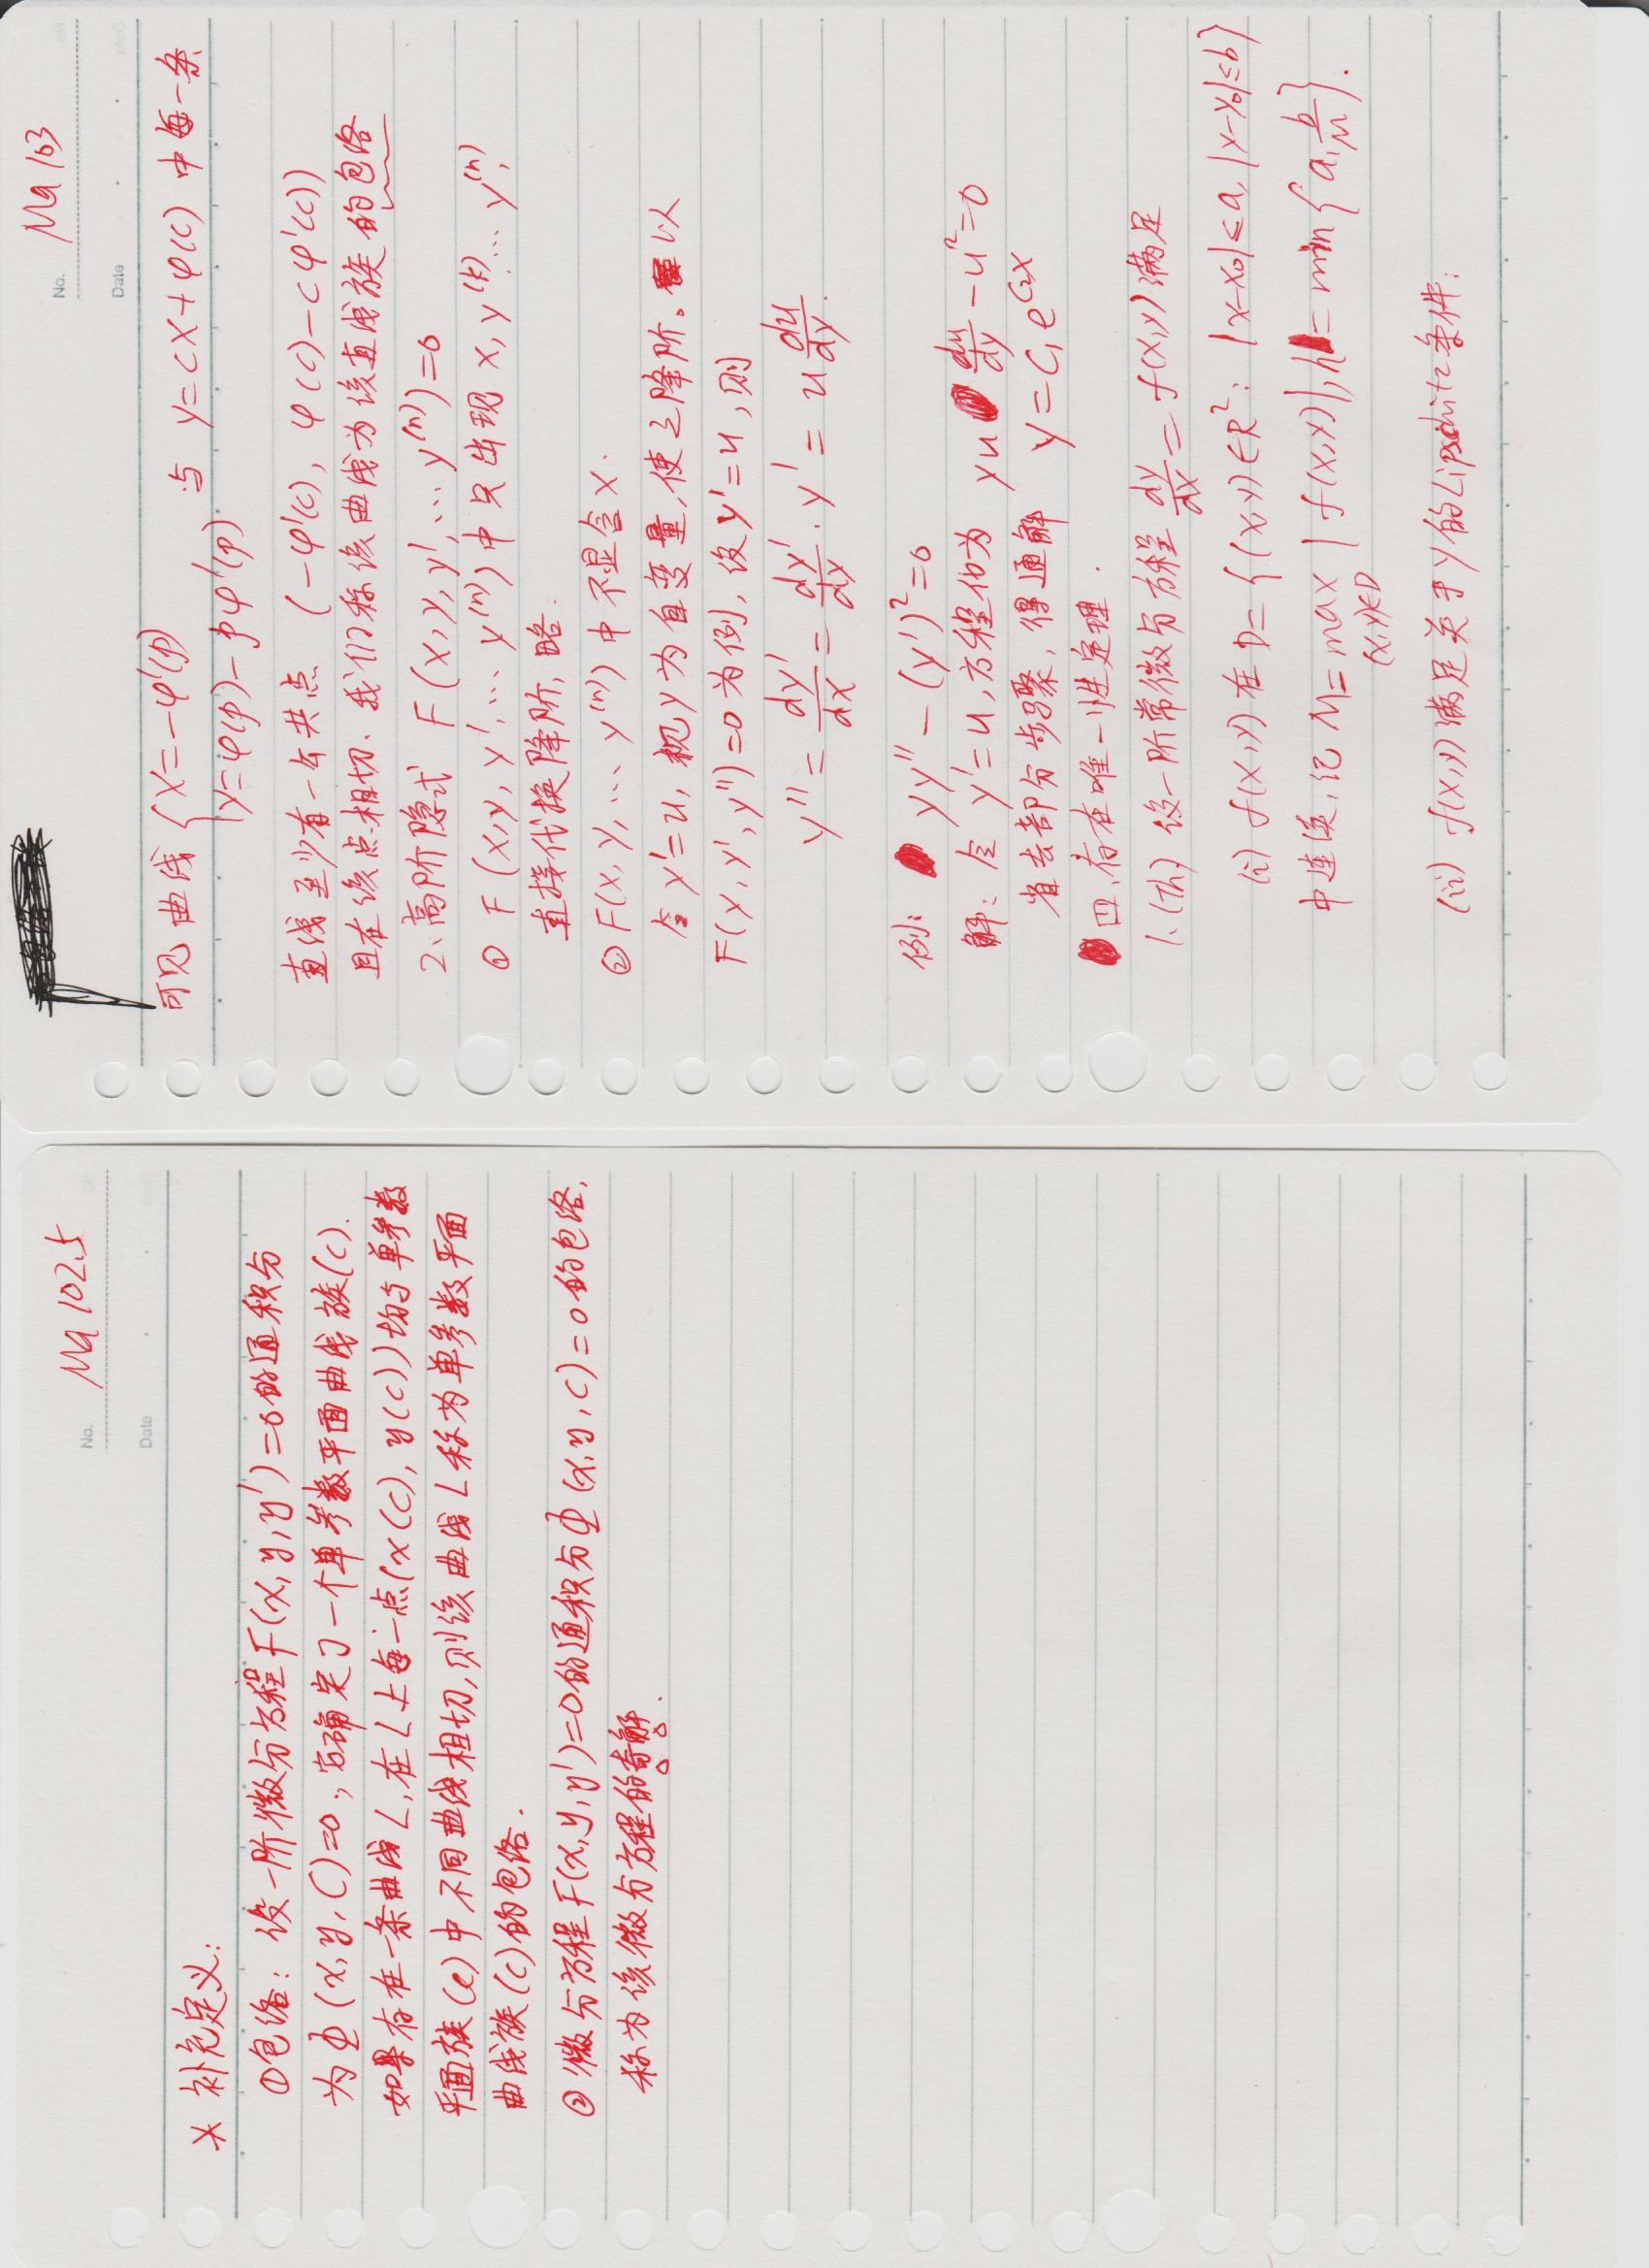 No. Ma 102.5
Date
* 补充定义:
①包络: 设一阶微分方程F(x, y, y')=0的通积分
为Φ(x, y, C)=0, 它确定了一个单参数平面曲线族(C).
如果存在一条曲线L, 在L上每一点(x(C), y(C))均与单参数
平面族(C)中不同曲线相切, 则该曲线L称为单参数平面
曲线族(C)的包络.
② 微分方程F(x, y, y')=0的通积分Φ(x, y, C)=0的包络,
称为该微分方程的奇解.
No. Ma 103
Date
可见曲线 { x=-φ'(p) 与 y=cx+φ(c) 中每一条
y=φ(p)-pφ'(p)
直线至少有一公共点 (-φ'(c), φ(c)-cφ'(c))
且在该点相切. 我们称该曲线为该直线族的包络
2、高阶隐式 F(x, y, y', … y⁽ⁿ⁾)=0
① F(x, y, y', … y⁽ⁿ⁾)中只出现 x, y⁽ᵏ⁾… y⁽ⁿ⁾,
直接代换降阶, 略.
② F(x, y, … y⁽ⁿ⁾)中不显含x.
令y'=u, 视y为自变量, 使之降阶。以
F(y, y', y'')=0为例, 设y'=u, 则
y'' = dy'/dx = dy'/dy · y' = u du/dy.
例: yy'' - (y')²=0
解: 令 y'=u, 方程化为 yu du/dy - u²=0
省去部分步骤, 得通解 y=C₁e^(C₂x)
四、存在唯一性定理.
1. (Th) 设一阶常微分方程 dy/dx = f(x,y)满足
(i) f(x,y)在D={(x,y)∈R²: |x-x₀|≤a, |y-y₀|≤b}
中连续, 记 M= max |f(x,y)|, h= min{a, b/M}.
(x,y)∈D
(ii) f(x,y)满足关于y的Lipschitz条件;